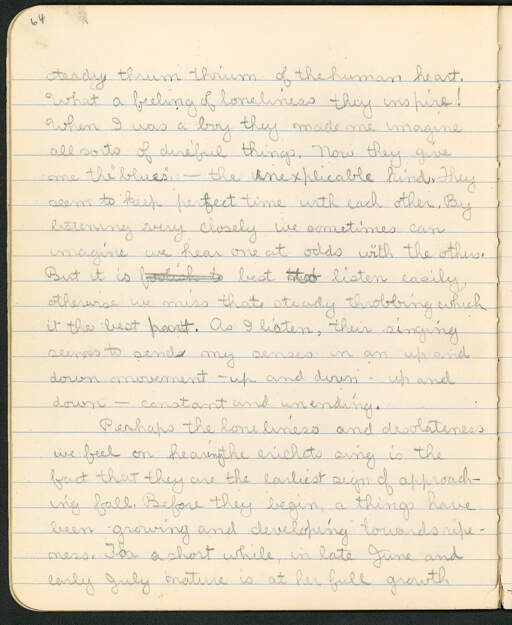 64
steady thrum thrum of the human heart.
What a feeling of loneliness they inspire!
When I was a boy they made me imagine
all sorts of direful things. Now they give
me the "blues" — the unexplicable kind. They
seem to keep perfect time with each other. By
listening very closely we sometimes can
imagine we hear one at odds with the others.
But it is foolish to best to listen easily,
otherwise we miss that steady throbbing which
it the best part. As I listen, their singing
seems to send my senses in an up and
down movement - up and down - up and
down — constant and unending.
Perhaps the loneliness and desolateness
we feel on hearing the crickets sing is the
fact that they are the earliest sign of approach-
ing fall. Before they begin, a things have
been growing and developing towards ripe-
ness. For a short while, in late June and
early July nature is at her full growth